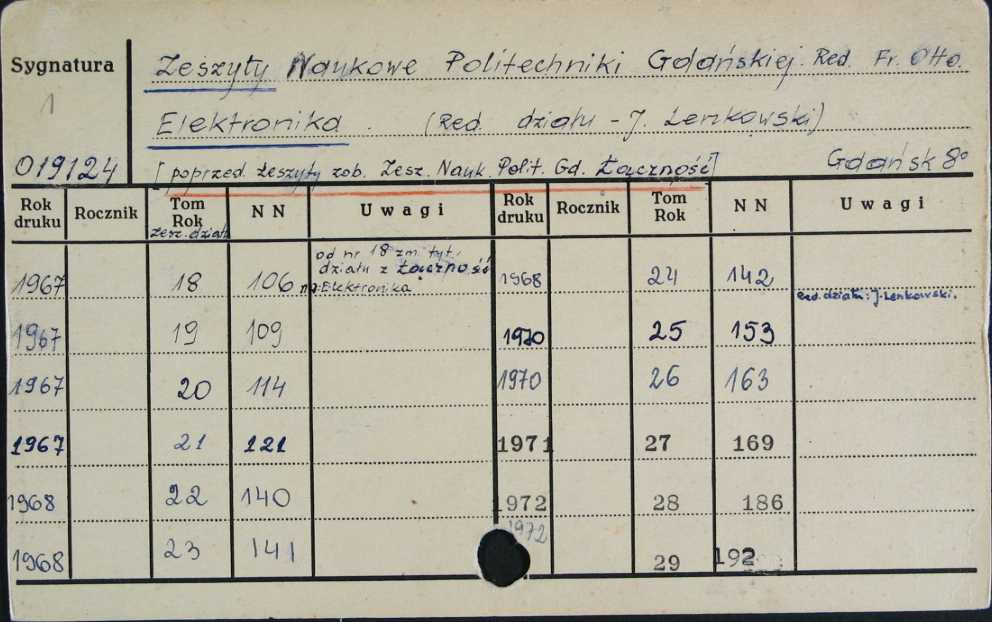 Sygnatura
1
019124
Zeszyty Naukowe Politechniki Gdańskiej. Red. Fr. Otto.
Elektronika. (Red. działu - J. Lenkowski)
[poprzed. zeszyty zob. Zesz. Nauk. Polit. Gd. Łączność]
Gdańsk 8°
Rok druku Rocznik Tom Rok NN Uwagi Rok druku Rocznik Tom Rok NN Uwagi
zesz. działu
1967 18 106 od nr 18 zm. tyt. działu z Łączność na: Elektronika 1968 24 142 Red. działu: J. Lenkowski.
1967 19 109 1970 25 153
1967 20 114 1970 26 163
1967 21 121 1971 27 169
1968 22 140 1972 28 186
1968 23 141 1972 29 192